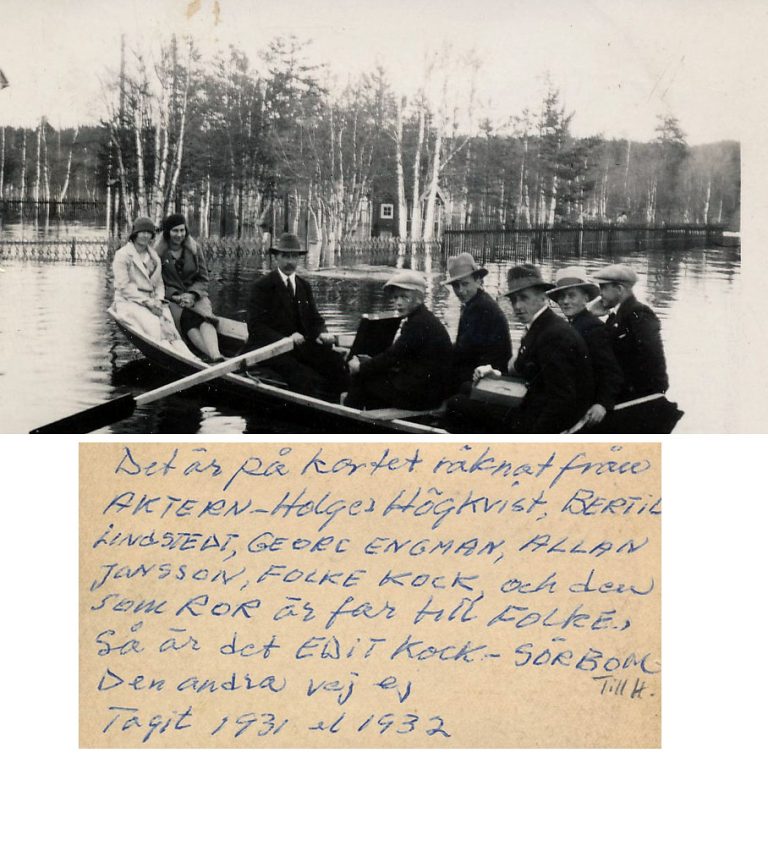 Det är på kortet räknat från
AKTERN - Holger HÖGKVIST, BERTIL
LINDSTEDT, GEORG ENGMAN, ALLAN
JANSSON, FOLKE KOCK, och den
som ROR är far till FOLKE,
Så är det EDIT KOCK - SÖRBOM
Den andra vej ej
Till H.
Tagit 1931 el 1932